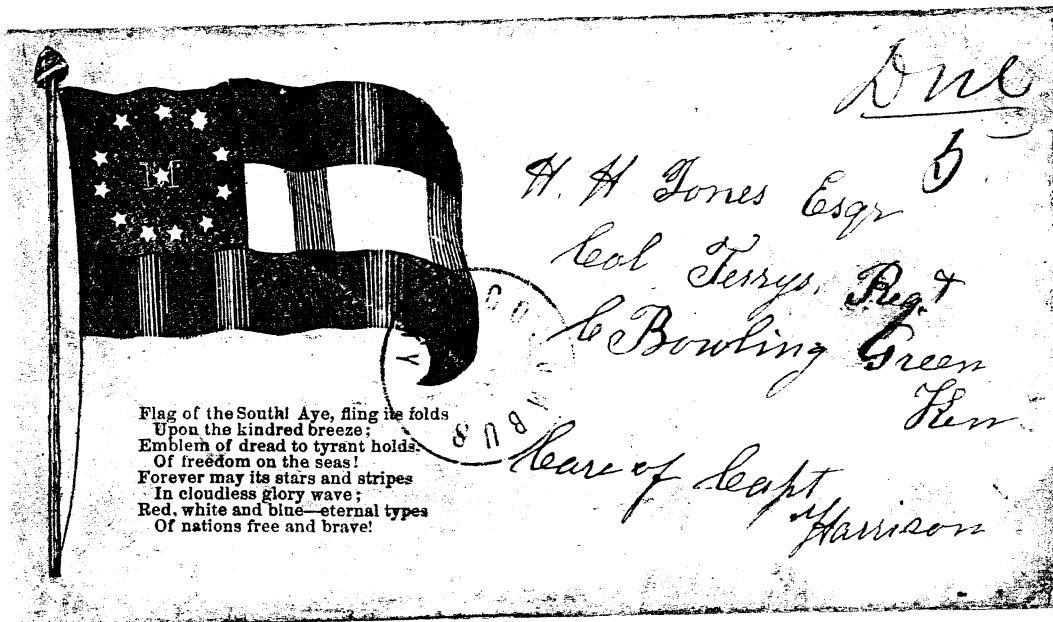 Due
5
H. H Jones Esqr
Col Terrys, Regt
Bowling Green
Ken
Care of Capt
Harrison
COLUMBUS KY
Flag of the South! Aye, fling its folds
Upon the kindred breeze;
Emblem of dread to tyrant holds.
Of freedom on the seas!
Forever may its stars and stripes
In cloudless glory wave;
Red, white and blue—eternal types
Of nations free and brave!